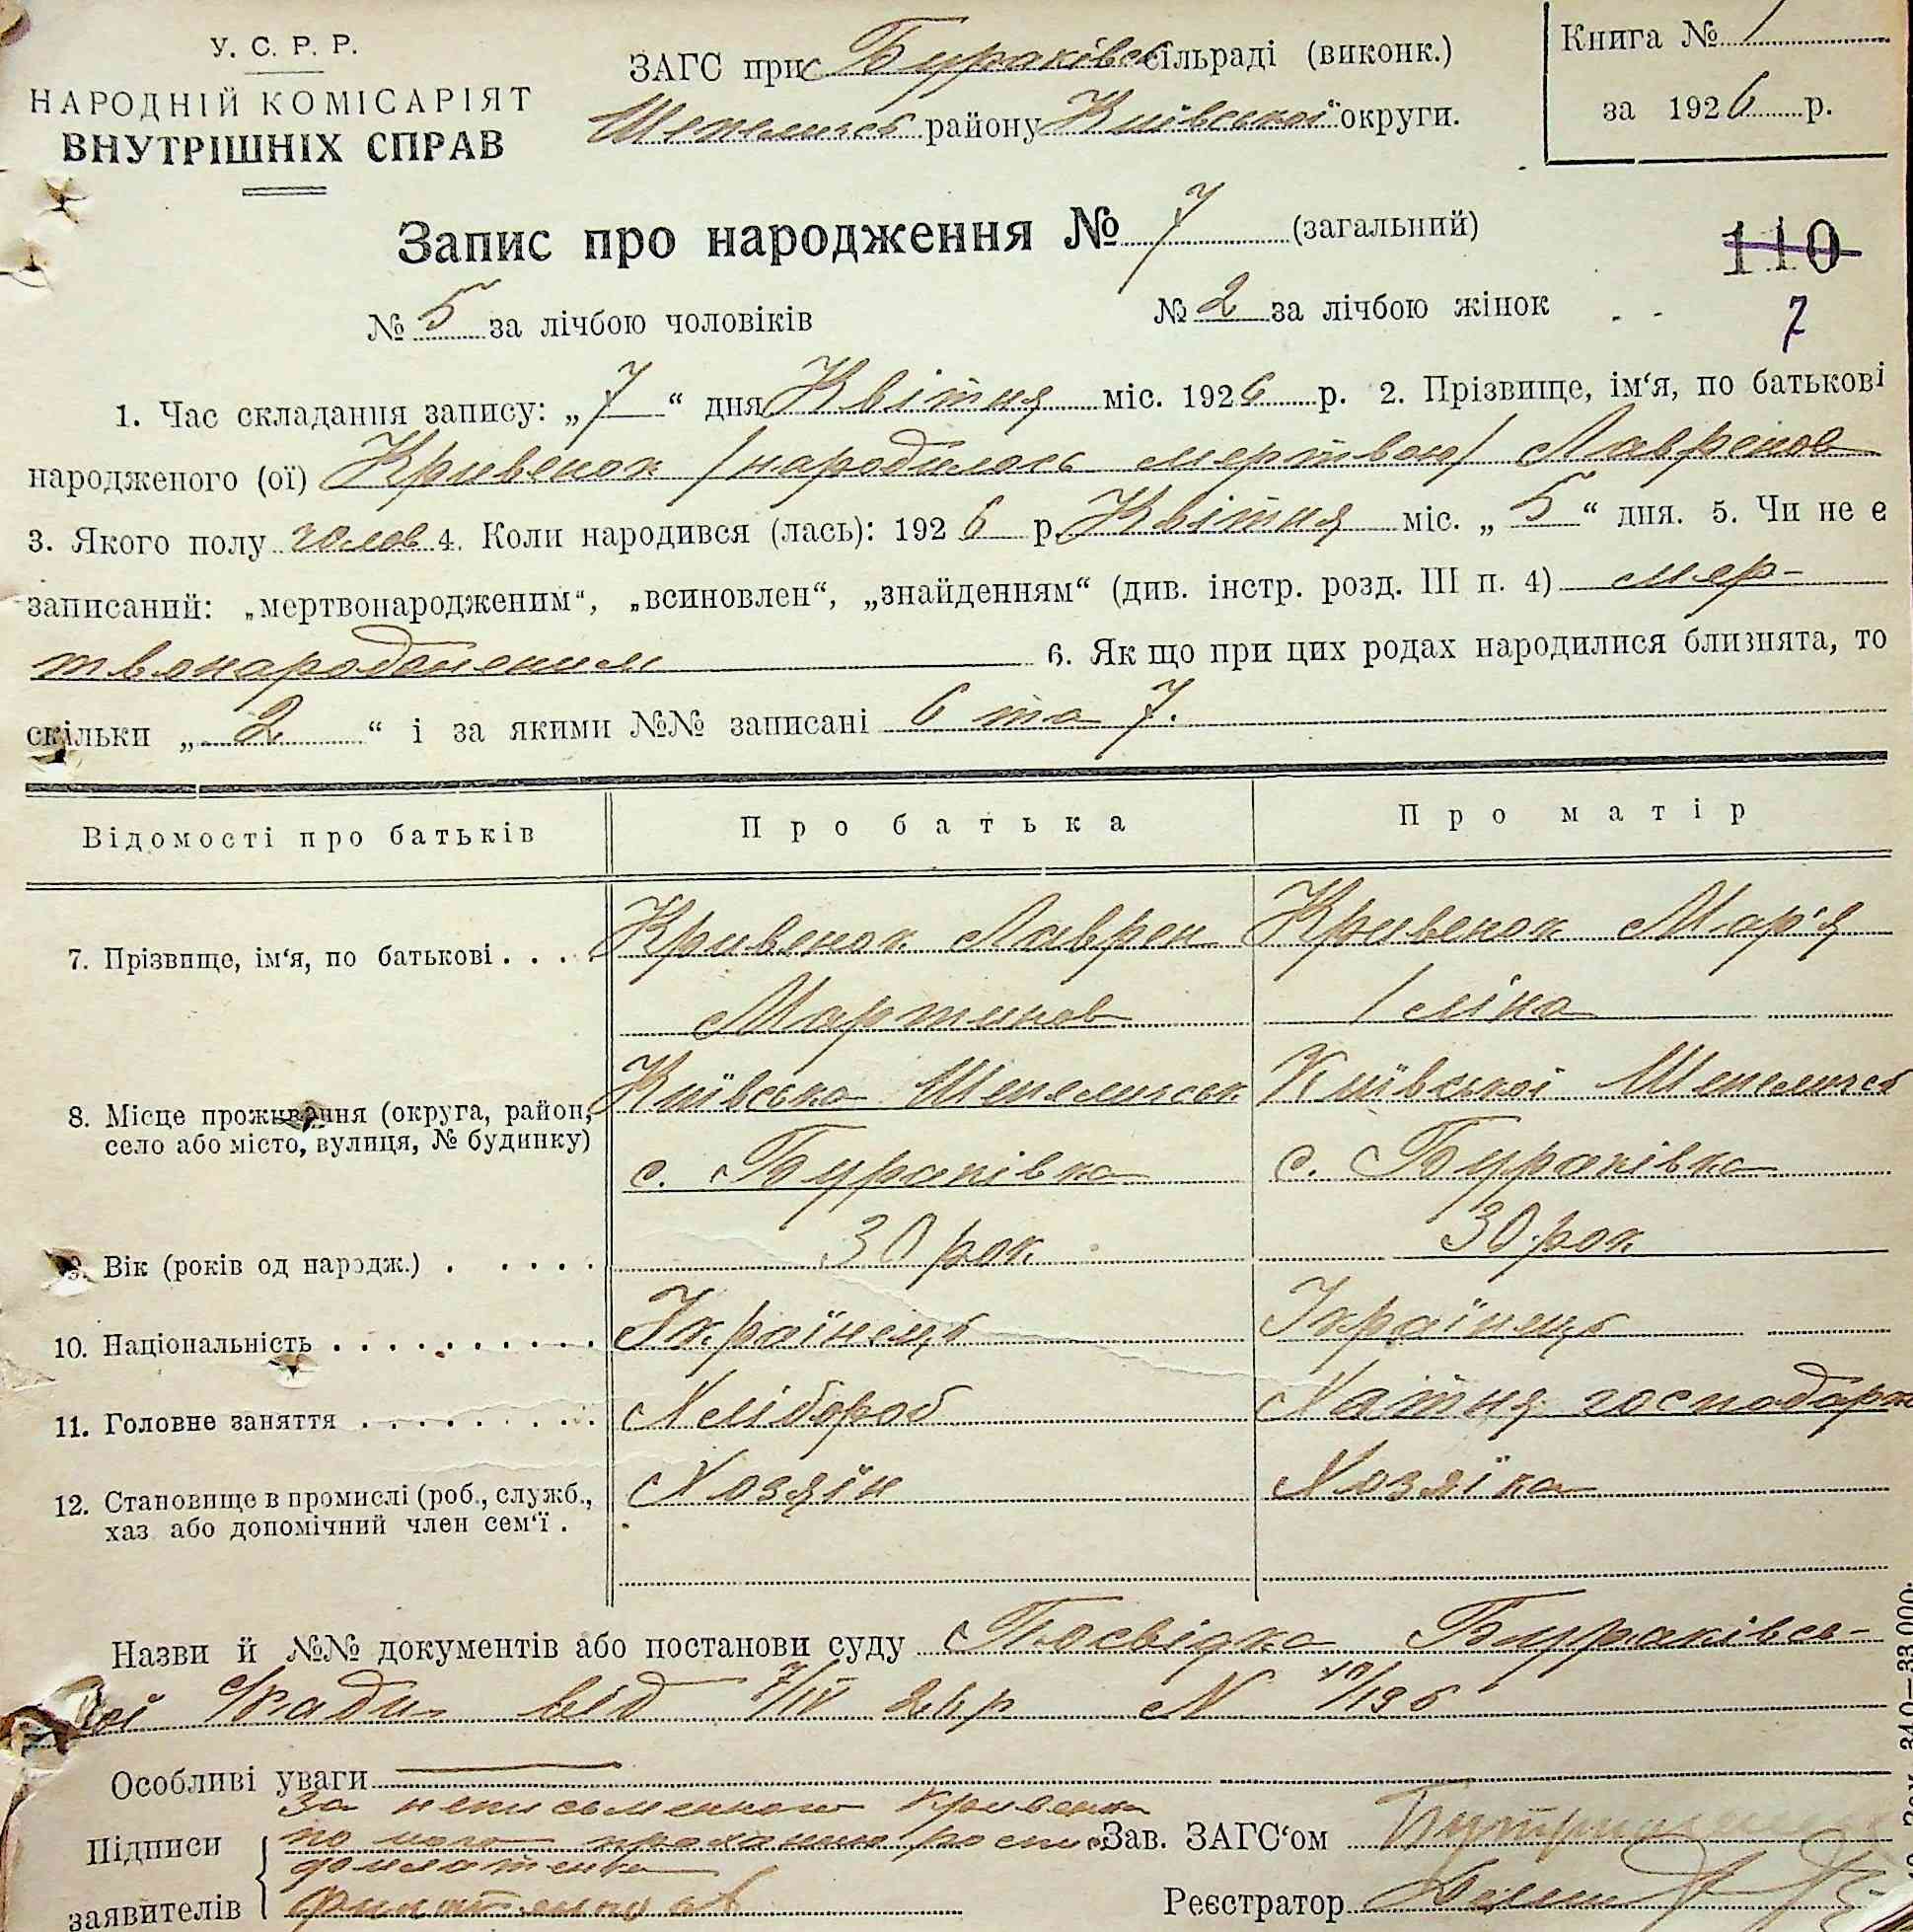 У. С. Р. Р.
НАРОДНІЙ КОМІСАРІЯТ
ВНУТРІШНІХ СПРАВ
ЗАГС при Бураківс сільраді (виконк.)
Шепелич району Київської округи.
Книга № 1
за 1926 р.
Запис про народження № 7 (загальний)
110
№ 5 за лічбою чоловіків № 2 за лічбою жінок
7
1. Час складання запису: „7“ дня Квітня міс. 1926 р. 2. Прізвище, ім‘я, по батькові
народженого (ої) Кривенок /народилось мертвою/ Лавренов
3. Якого полу чолов 4. Коли народився (лась): 1926 р. Квітня міс. „5“ дня. 5. Чи не є
записаний: „мертвонародженим“, „всиновлен“, „знайденням“ (див. інстр. розд. III п. 4) мер-
твонародженим 6. Як що при цих родах народилися близнята, то
скільки „2“ і за якими №№ записані 6 та 7.
Відомості про батьків Про батька Про матір
7. Прізвище, ім‘я, по батькові . . . . Кривенок Лаврен Кривенок Мар'я
Мартинов
8. Місце проживання (округа, район, Київська Шепелическ Київської Шепелич
село або місто, вулиця, № будинку)
с. Бураківка с. Бураківка
9. Вік (років од народж.) . . . . . . 30 рок 30 рок
10. Національність . . . . . . . . . . Українець Українець
11. Головне заняття . . . . . . . . . Хлібороб Хатня господарк
12. Становище в промислі (роб., служб., Хозяїн Хозяїка
хаз або допомічний член сем‘ї .
Назви й №№ документів або постанови суду Посвідка Бураківсь-
кої С/ради від 7/IV 26 р N
Особливі уваги
за неписьменного Кривенка
Підписи по його проханню роспис Зав. ЗАГС‘ом
заявителів Реєстратор